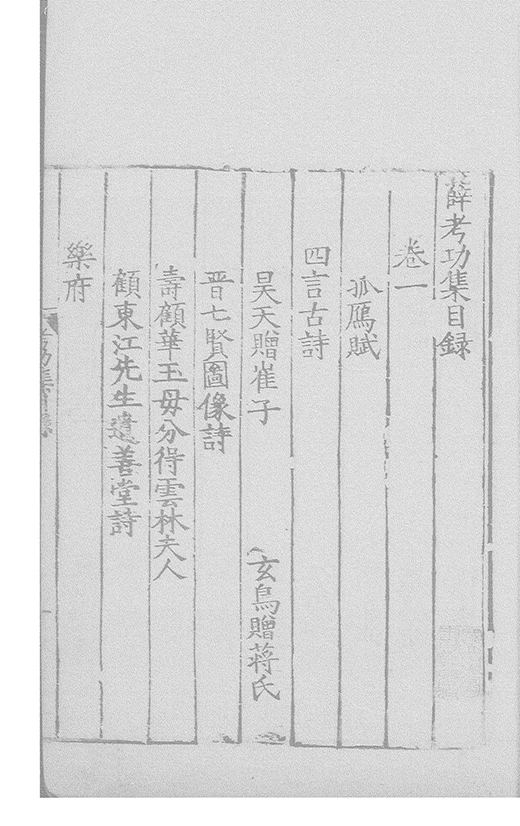 薛考功集目録
卷一
孤鴈賦
四言古詩
昊天贈崔子　玄鳥贈蔣氏
晋七賢圖像詩
壽顧華玉母分得雲林夫人
顧東江先生遺善堂詩
樂府